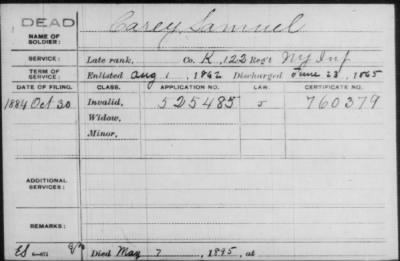 DEAD
NAME OF SOLDIER:
Carey, Samuel
SERVICE:
Late rank, Co. K, 122 Reg't NY Inf
TERM OF SERVICE:
Enlisted Aug 1, 1862 Discharged June 23, 1865
DATE OF FILING. CLASS. APPLICATION NO. LAW. CERTIFICATE NO.
1884 Oct 30 Invalid, 525485 5 760379
Widow,
Minor,
ADDITIONAL SERVICES:
REMARKS:
ES
Died May 7, 1895, at